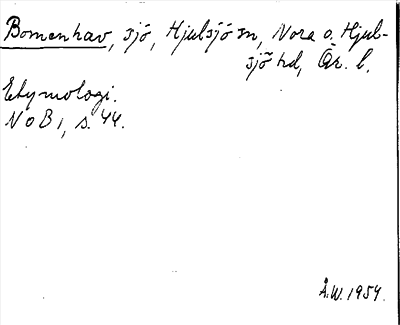 Bomenhav, sjö, Hjulsjö sn, Nora o. Hjul-
sjö hd, Ör. l.
Etymologi.
NoB 1, s. 44.
Å.W. 1954.